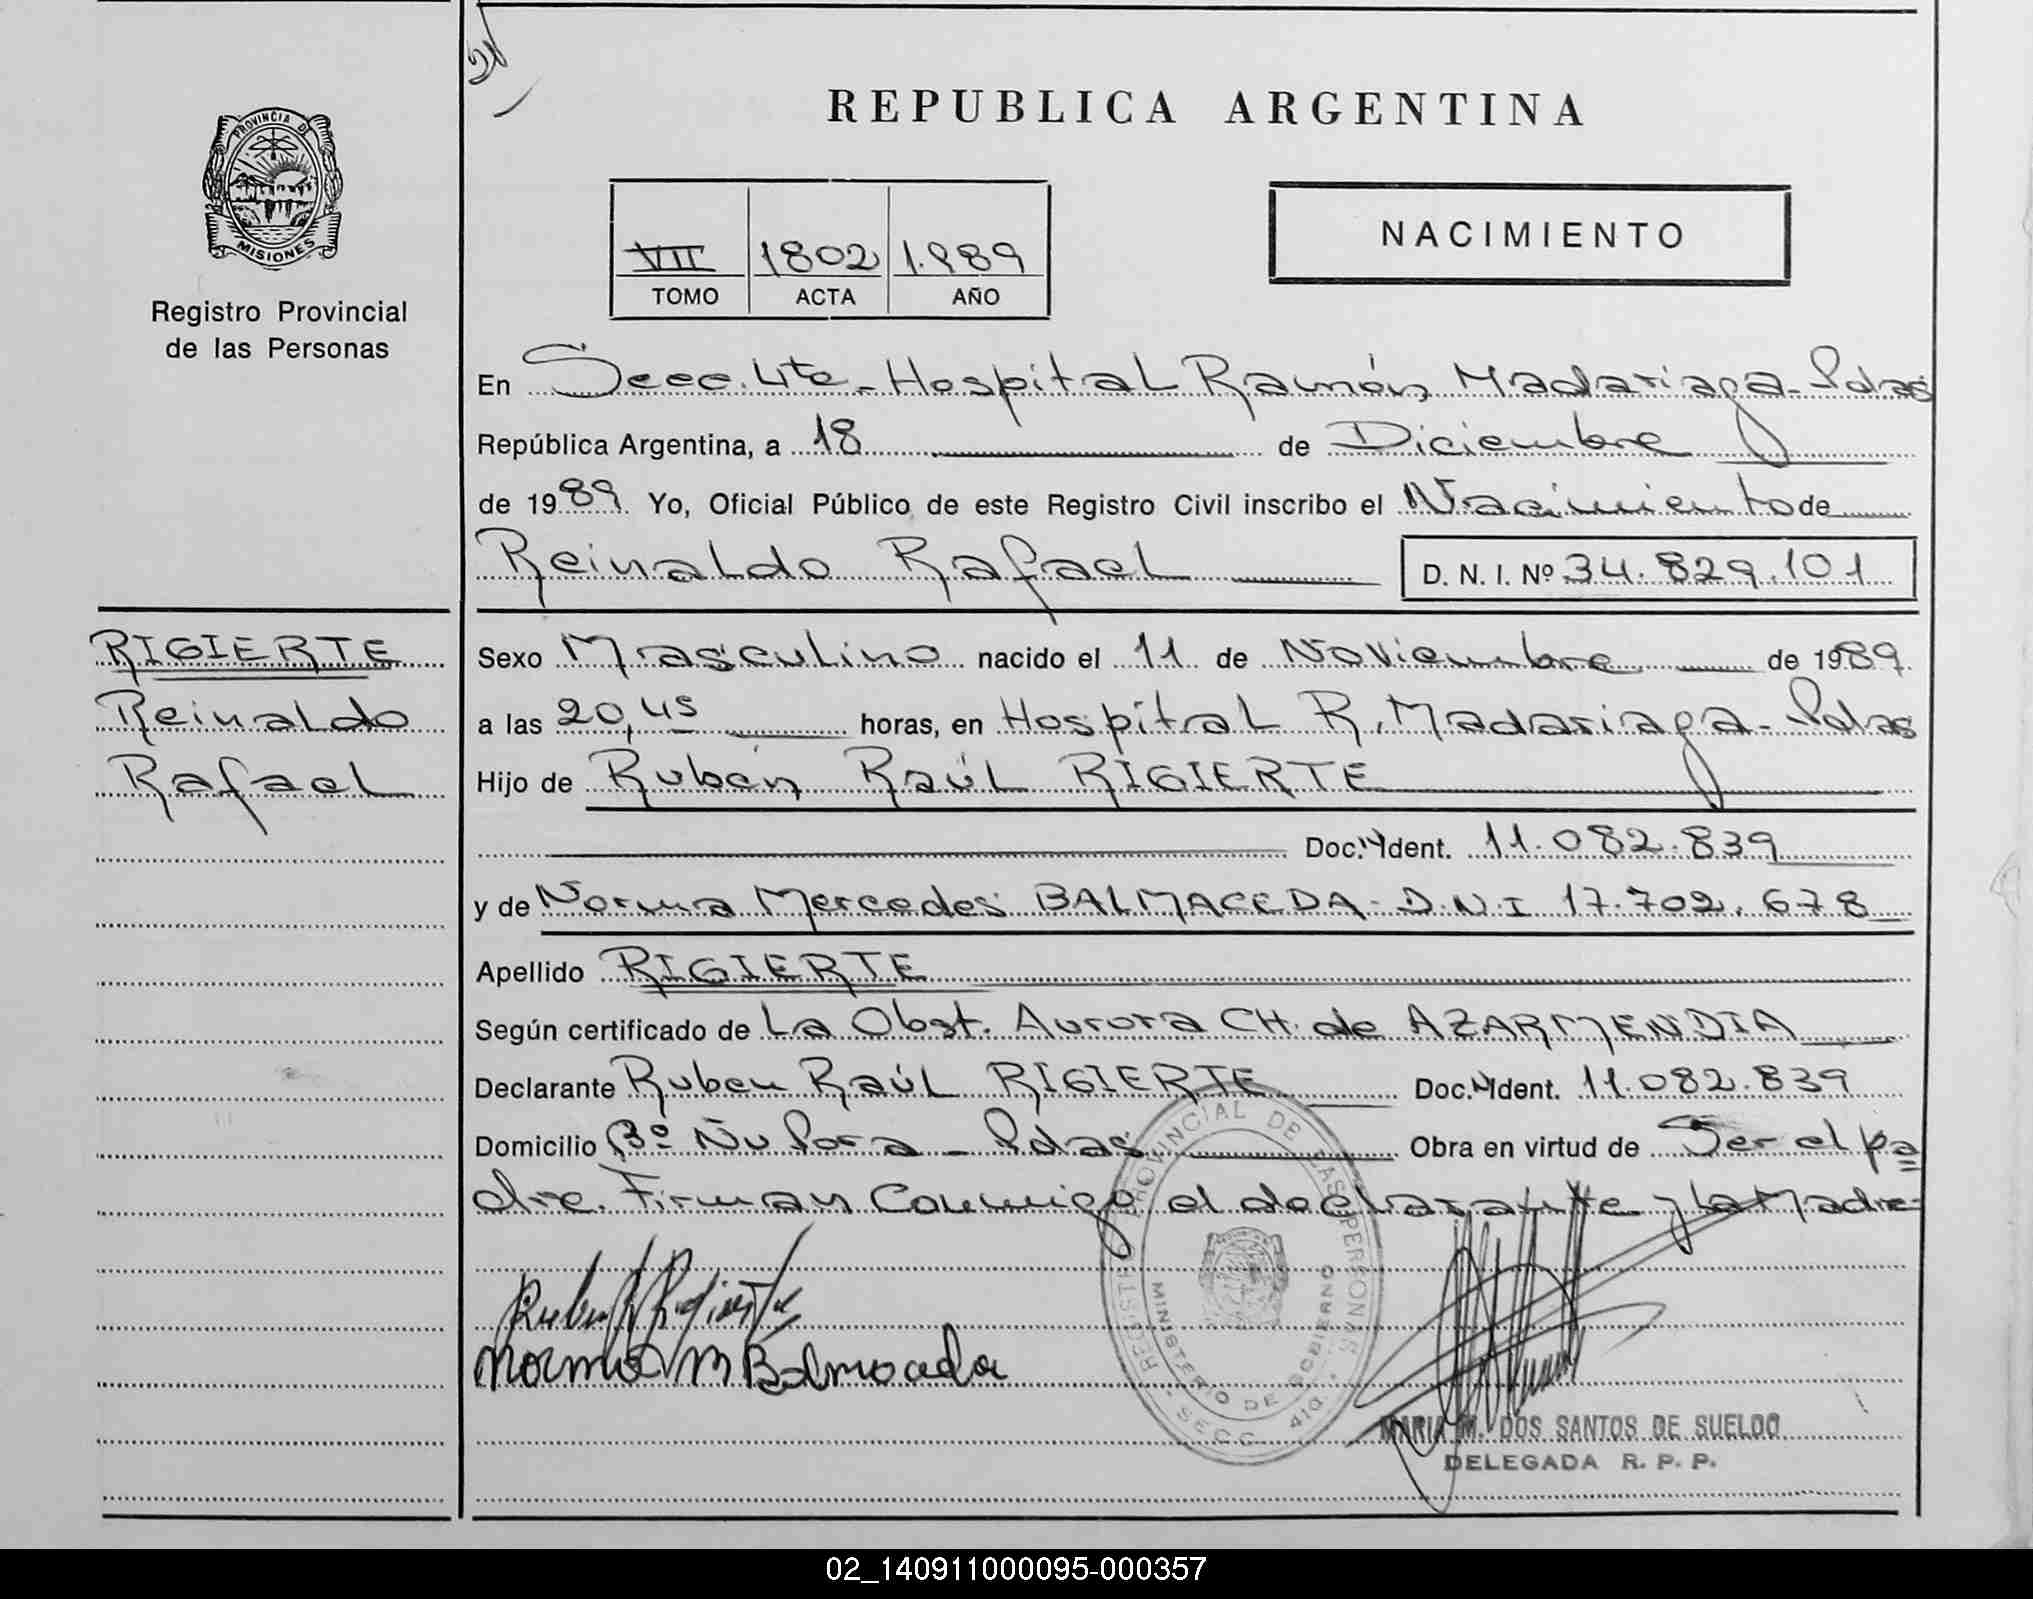 PROVINCIA DE
MISIONES
Registro Provincial
de las Personas
RIGIERTE
Reinaldo
Rafael
REPUBLICA ARGENTINA
VII 1802 1.989
TOMO ACTA AÑO
NACIMIENTO
En Secc. 4ta - Hospital Ramón Madariaga - Pdas
República Argentina, a 18 de Diciembre
de 1989 Yo, Oficial Público de este Registro Civil inscribo el Nacimiento de
Reinaldo Rafael D. N. I. Nº 34.829.101
Sexo Masculino nacido el 11 de Noviembre de 1989.
a las 20,45 horas, en Hospital R. Madariaga - Pdas
Hijo de Rubén Raúl RIGIERTE
Doc. Ident. 11.082.839
y de Norma Mercedes BALMACEDA - D.N.I 17.702.678
Apellido RIGIERTE
Según certificado de La Obst. Aurora CH. de AZARMENDIA
Declarante Ruben Raúl RIGIERTE Doc. Ident. 11.082.839
Domicilio Bº Ñu Pora - Pdas Obra en virtud de Ser el pa
dre. Firman Conmigo el declarante y La Madre-
Norma M Balmaceda
REGISTRO PROVINCIAL DE LAS PERSONAS
MINISTERIO DE GOBIERNO
SECC. 4ta.
MARIA M. DOS SANTOS DE SUELDO
DELEGADA R. P. P.
02_140911000095-000357